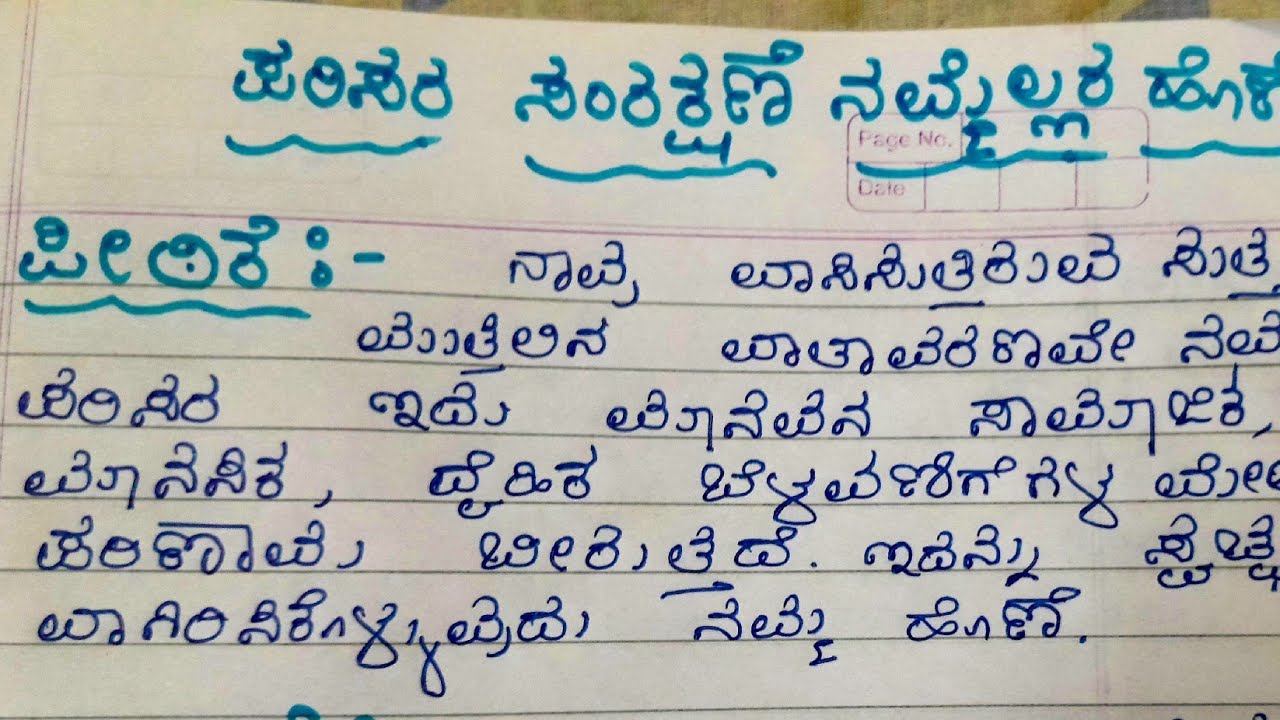 ಪರಿಸರ ಸಂರಕ್ಷಣೆ ನಮ್ಮೆಲ್ಲರ
Page No.
Date
ಪೀಠಿಕೆ :- ನಾವು ವಾಸಿಸುತ್ತಿರುವ ಸುತ್ತ
ಮುತ್ತಲಿನ ವಾತಾವರಣವೇ ನಮ್ಮ
ಪರಿಸರ ಇದು ಮಾನವನ ಸಾಮಾಜಿಕ,
ಮಾನಸಿಕ, ದೈಹಿಕ ಬೆಳವಣಿಗೆಗಳ
ಪರಿಣಾಮ ಬೀರುತ್ತದೆ. ಇದನ್ನು ಸ್ವಚ್ಛ
ವಾಗಿರಿಸಿಕೊಳ್ಳುವುದು ನಮ್ಮ ಹೊಣೆ.